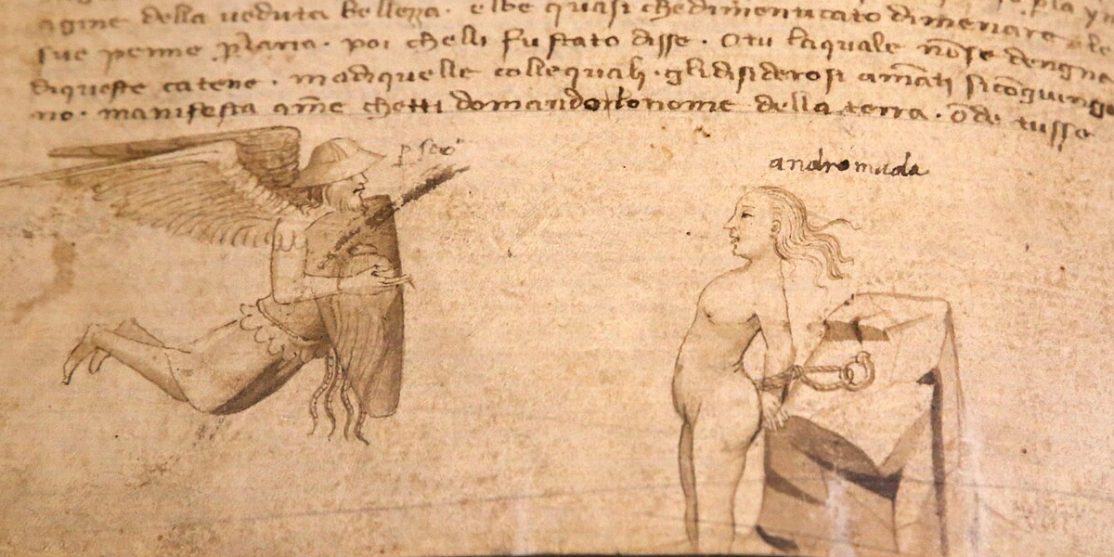 agine della ueduta bellezza · elle quasi chedimenticato dimenare le
sue penne p laria · poi chelli fu stato disse · O tu laquale nōse degna
diqueste catene · madiquelle collequali · glidisiderosi amāti sicōgiungo
no · manifesta ame chetti domando lo nome della terra · ōde tusse
p seo
andromada